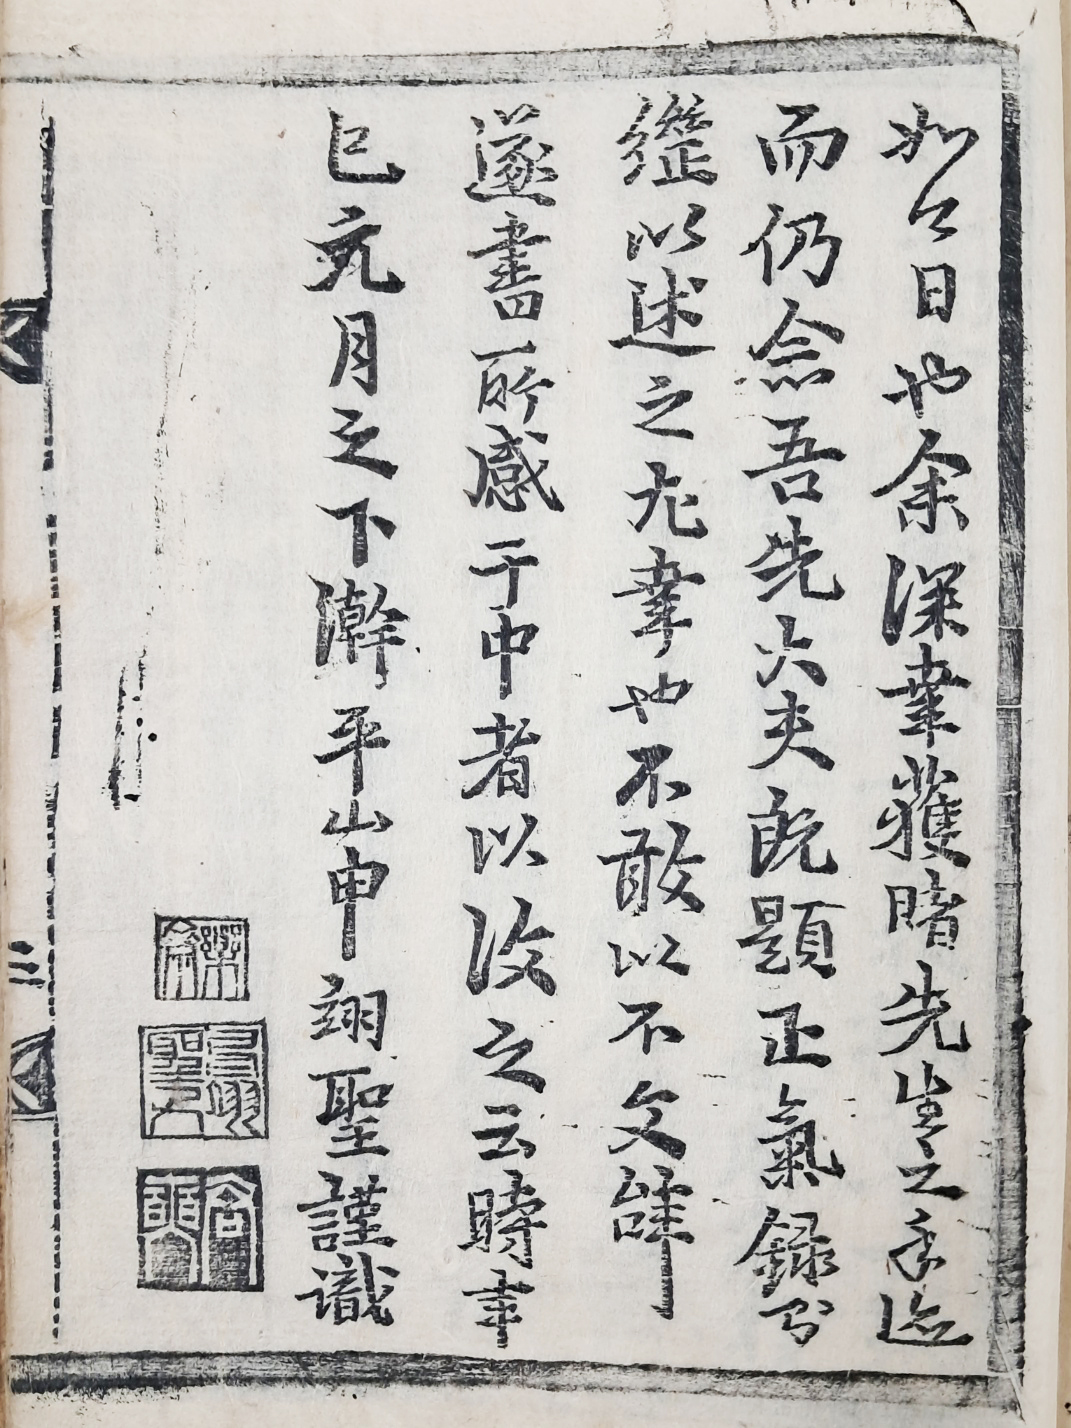 如今日也余深幸獲睹先之手迹
而仍念吾先大夫既題正氣錄
繼以述之尤幸也不敢以不文辭
遂書所感于中者以復之云時辛
巳元月之下澣平山申翊聖謹識
樂全
君奭
三